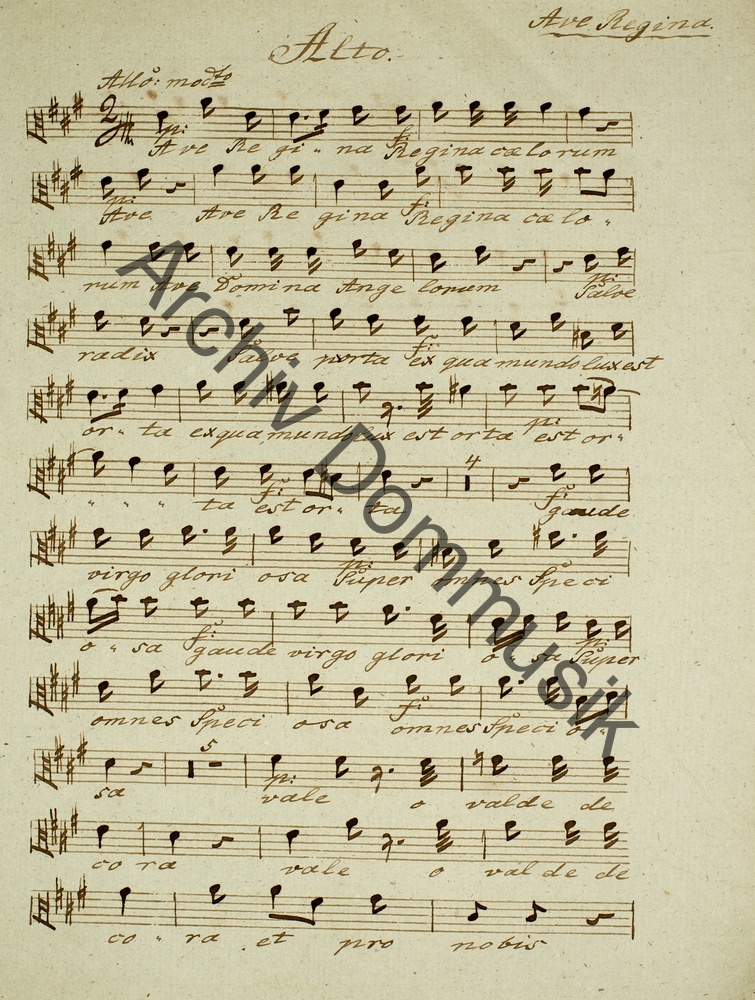 Ave Regina.
Alto.
Allo: modto
p: f:
Ave Re gi " na Regina cælorum
p: f:
Ave Ave Re gina Regina cælo "
p:
rum Ave Domina Ange lorum Salve
f:
radix Salve porta ex qua mundo lux est
p:
or " ta ex qua mundo lux est orta est or "
4
f: f:
" " " ta est or " ta gaude
p:
virgo glori osa Super omnes Speci
f: p:
o " sa gaude virgo glori o " sa Super
f:
omnes Speci osa omnes Speci o "
5
p:
sa vale o valde de
co ra vale o valde de
co " ra et pro nobis
Archiv Dommusik